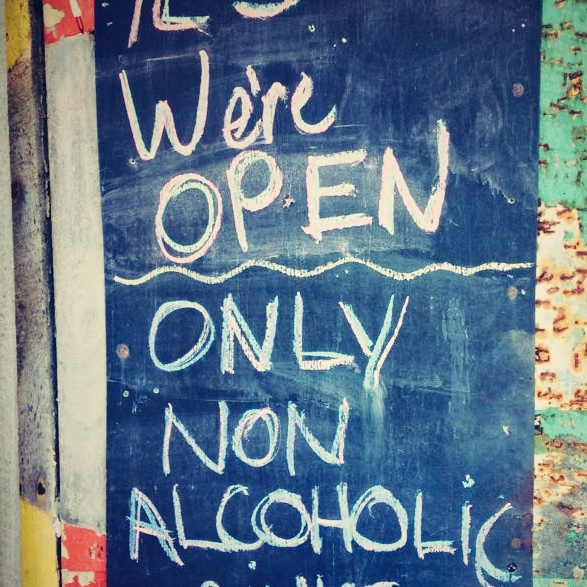 We're
OPEN
ONLY
NON
ALCOHOLiC